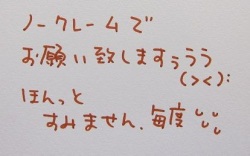 ノークレームで
お願い致しますぅぅぅ
(><);
ほんっと
すみません、毎度